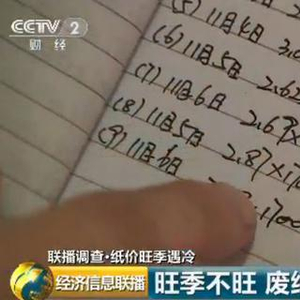 CCTV 2
财经
(5) 11月4日 3.0
(6) 11月5日 2.62
(7) 11月6日 2.69×
(8) 11月5日 2.87×1
(9) 11月6日
联播调查·纸价旺季遇冷
经济信息联播
旺季不旺 废纸